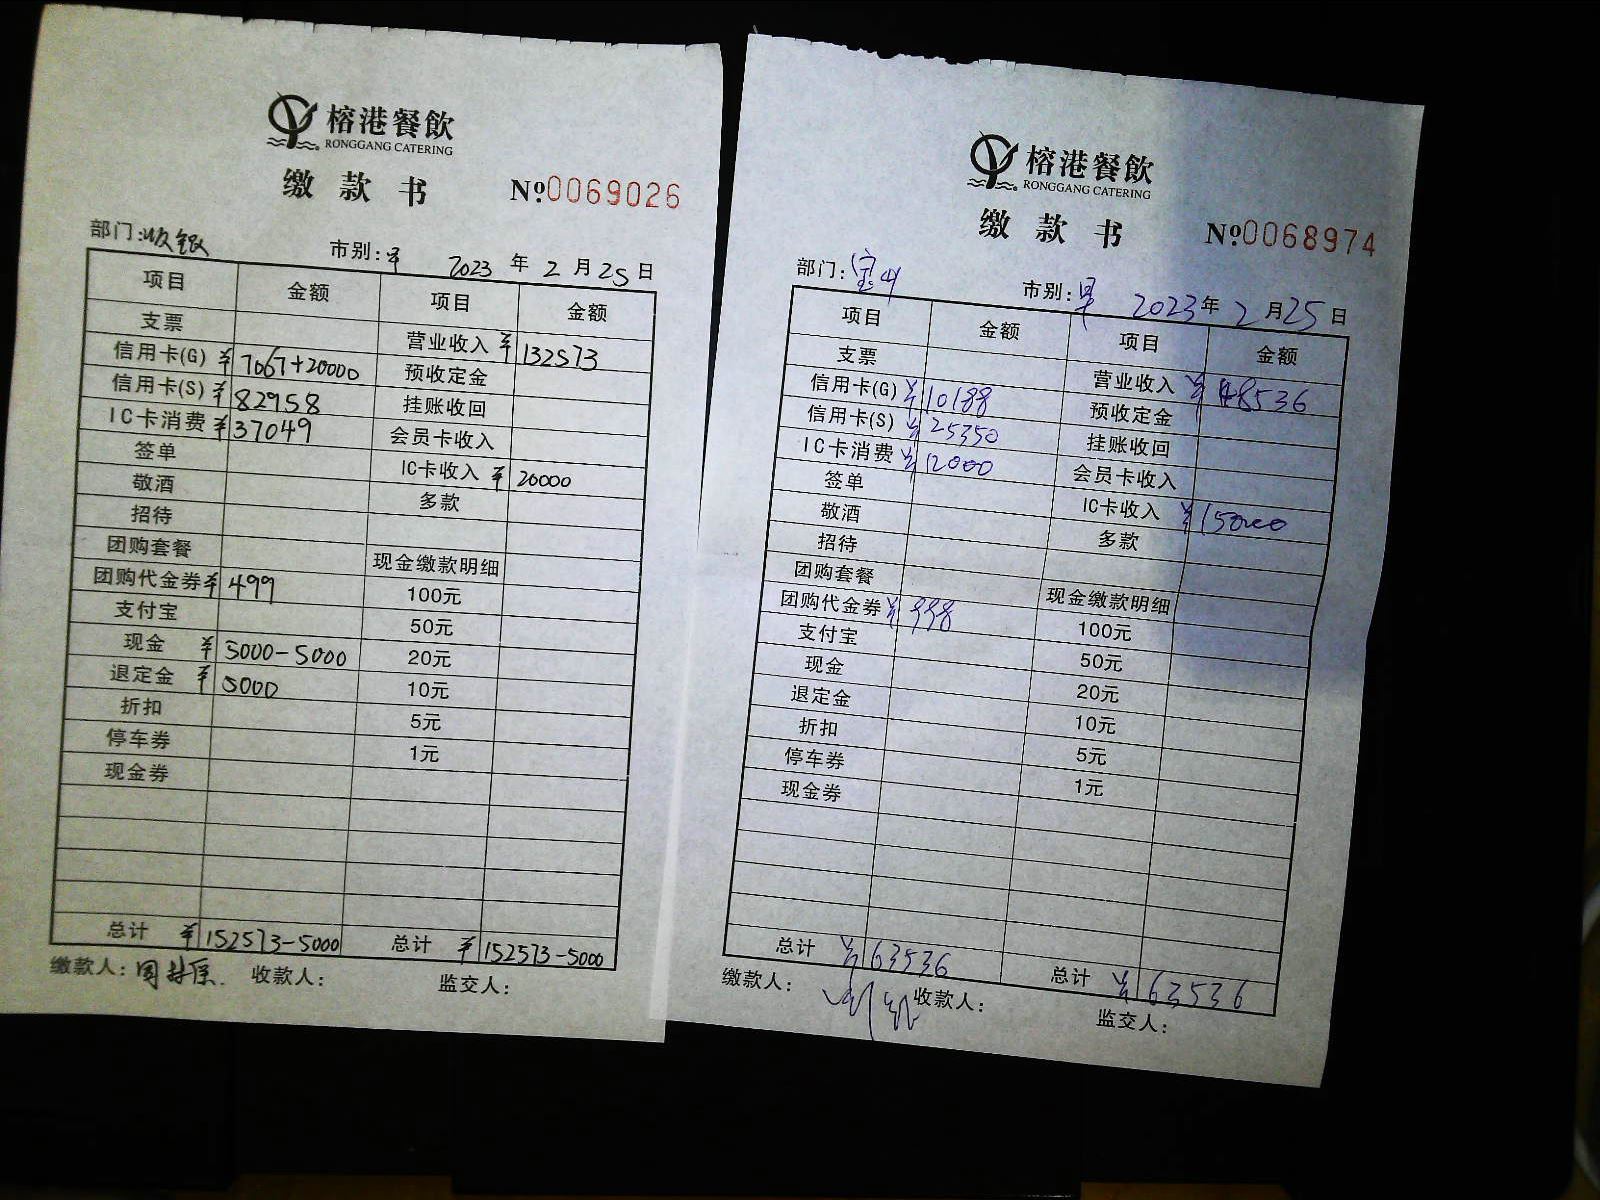 榕港餐飲
RONGGANG CATERING
缴款书 №0069026
部门:收银 市别:早 2023年2月25日
项目 金额 项目 金额
支票 营业收入 ¥132573
信用卡(G) ¥7067+20000 预收定金
信用卡(S) ¥82958 挂账收回
IC卡消费 ¥37049 会员卡收入
签单 IC卡收入 ¥20000
敬酒 多款
招待
团购套餐 现金缴款明细
团购代金券 ¥499 100元
支付宝 50元
现金 ¥5000-5000 20元
退定金 ¥5000 10元
折扣 5元
停车券 1元
现金券
总计 ¥152573-5000 总计 ¥152573-5000
缴款人: 收款人: 监交人:
榕港餐飲
RONGGANG CATERING
缴款书 №0068974
部门: 市别:早 2023年2月25日
项目 金额 项目 金额
支票 营业收入 ¥48536
信用卡(G) ¥10188 预收定金
信用卡(S) ¥25350 挂账收回
IC卡消费 ¥12000 会员卡收入
签单 IC卡收入 ¥15000
敬酒 多款
招待
团购套餐 现金缴款明细
团购代金券 ¥998 100元
支付宝 50元
现金 20元
退定金 10元
折扣 5元
停车券 1元
现金券
总计 ¥63536 总计 ¥63536
缴款人: 收款人: 监交人: